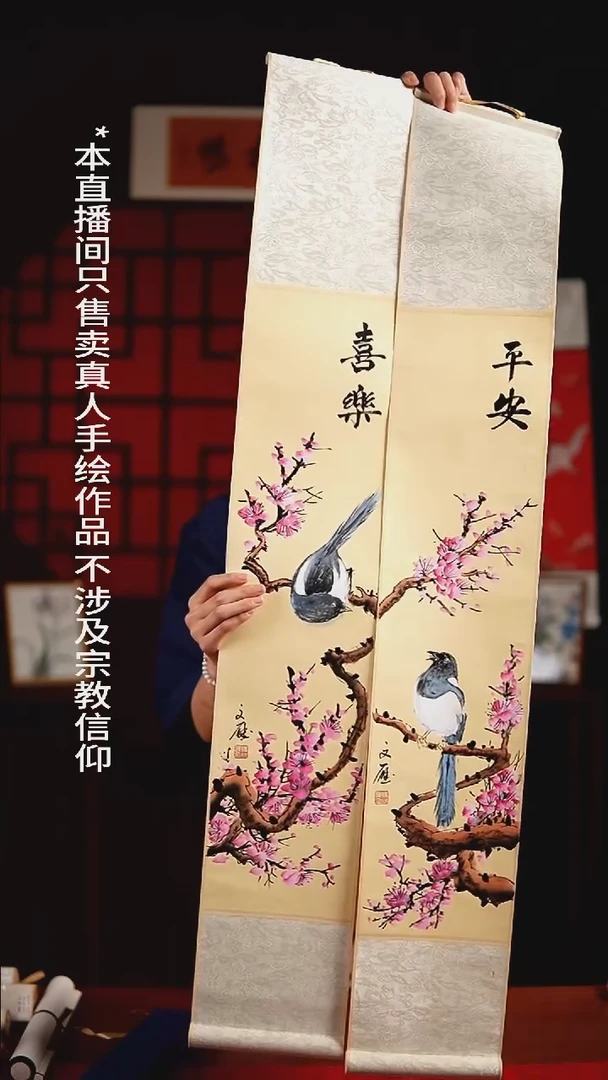 *本直播间只售卖真人手绘作品 不涉及宗教信仰
平安
喜樂
文雁
文雁